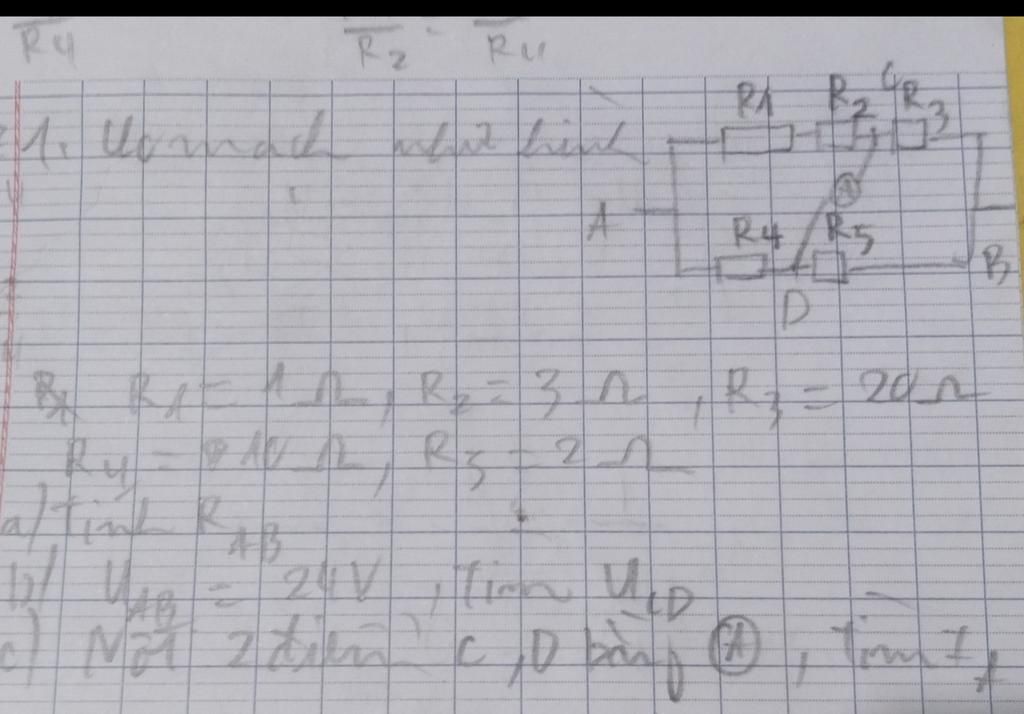 R4 R2 R4
1. Uo mạch như hình
R1 R2 C R3
A
A R4 R5 B
D
R1 = 1 Ω, R2 = 3 Ω, R3 = 20 Ω
R4 = 10 Ω, R5 = 2 Ω
a/ Tính RAB
b/ UAB = 24V, Tìm UCD
c) Nối 2 điểm C, D bằng A, tìm IA